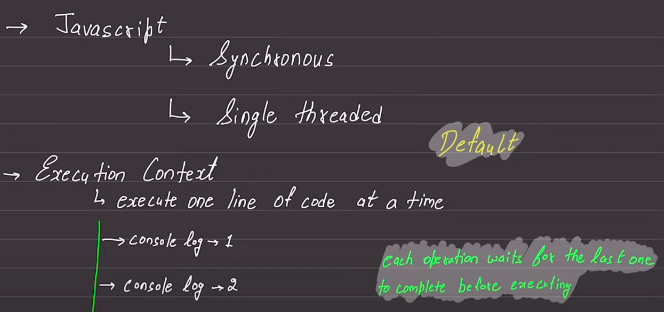 → Javascript
↳ Synchronous
↳ Single threaded
Default
→ Execution Context
↳ execute one line of code at a time
→ console log → 1
→ console log → 2
each operation waits for the last one
to complete before executing